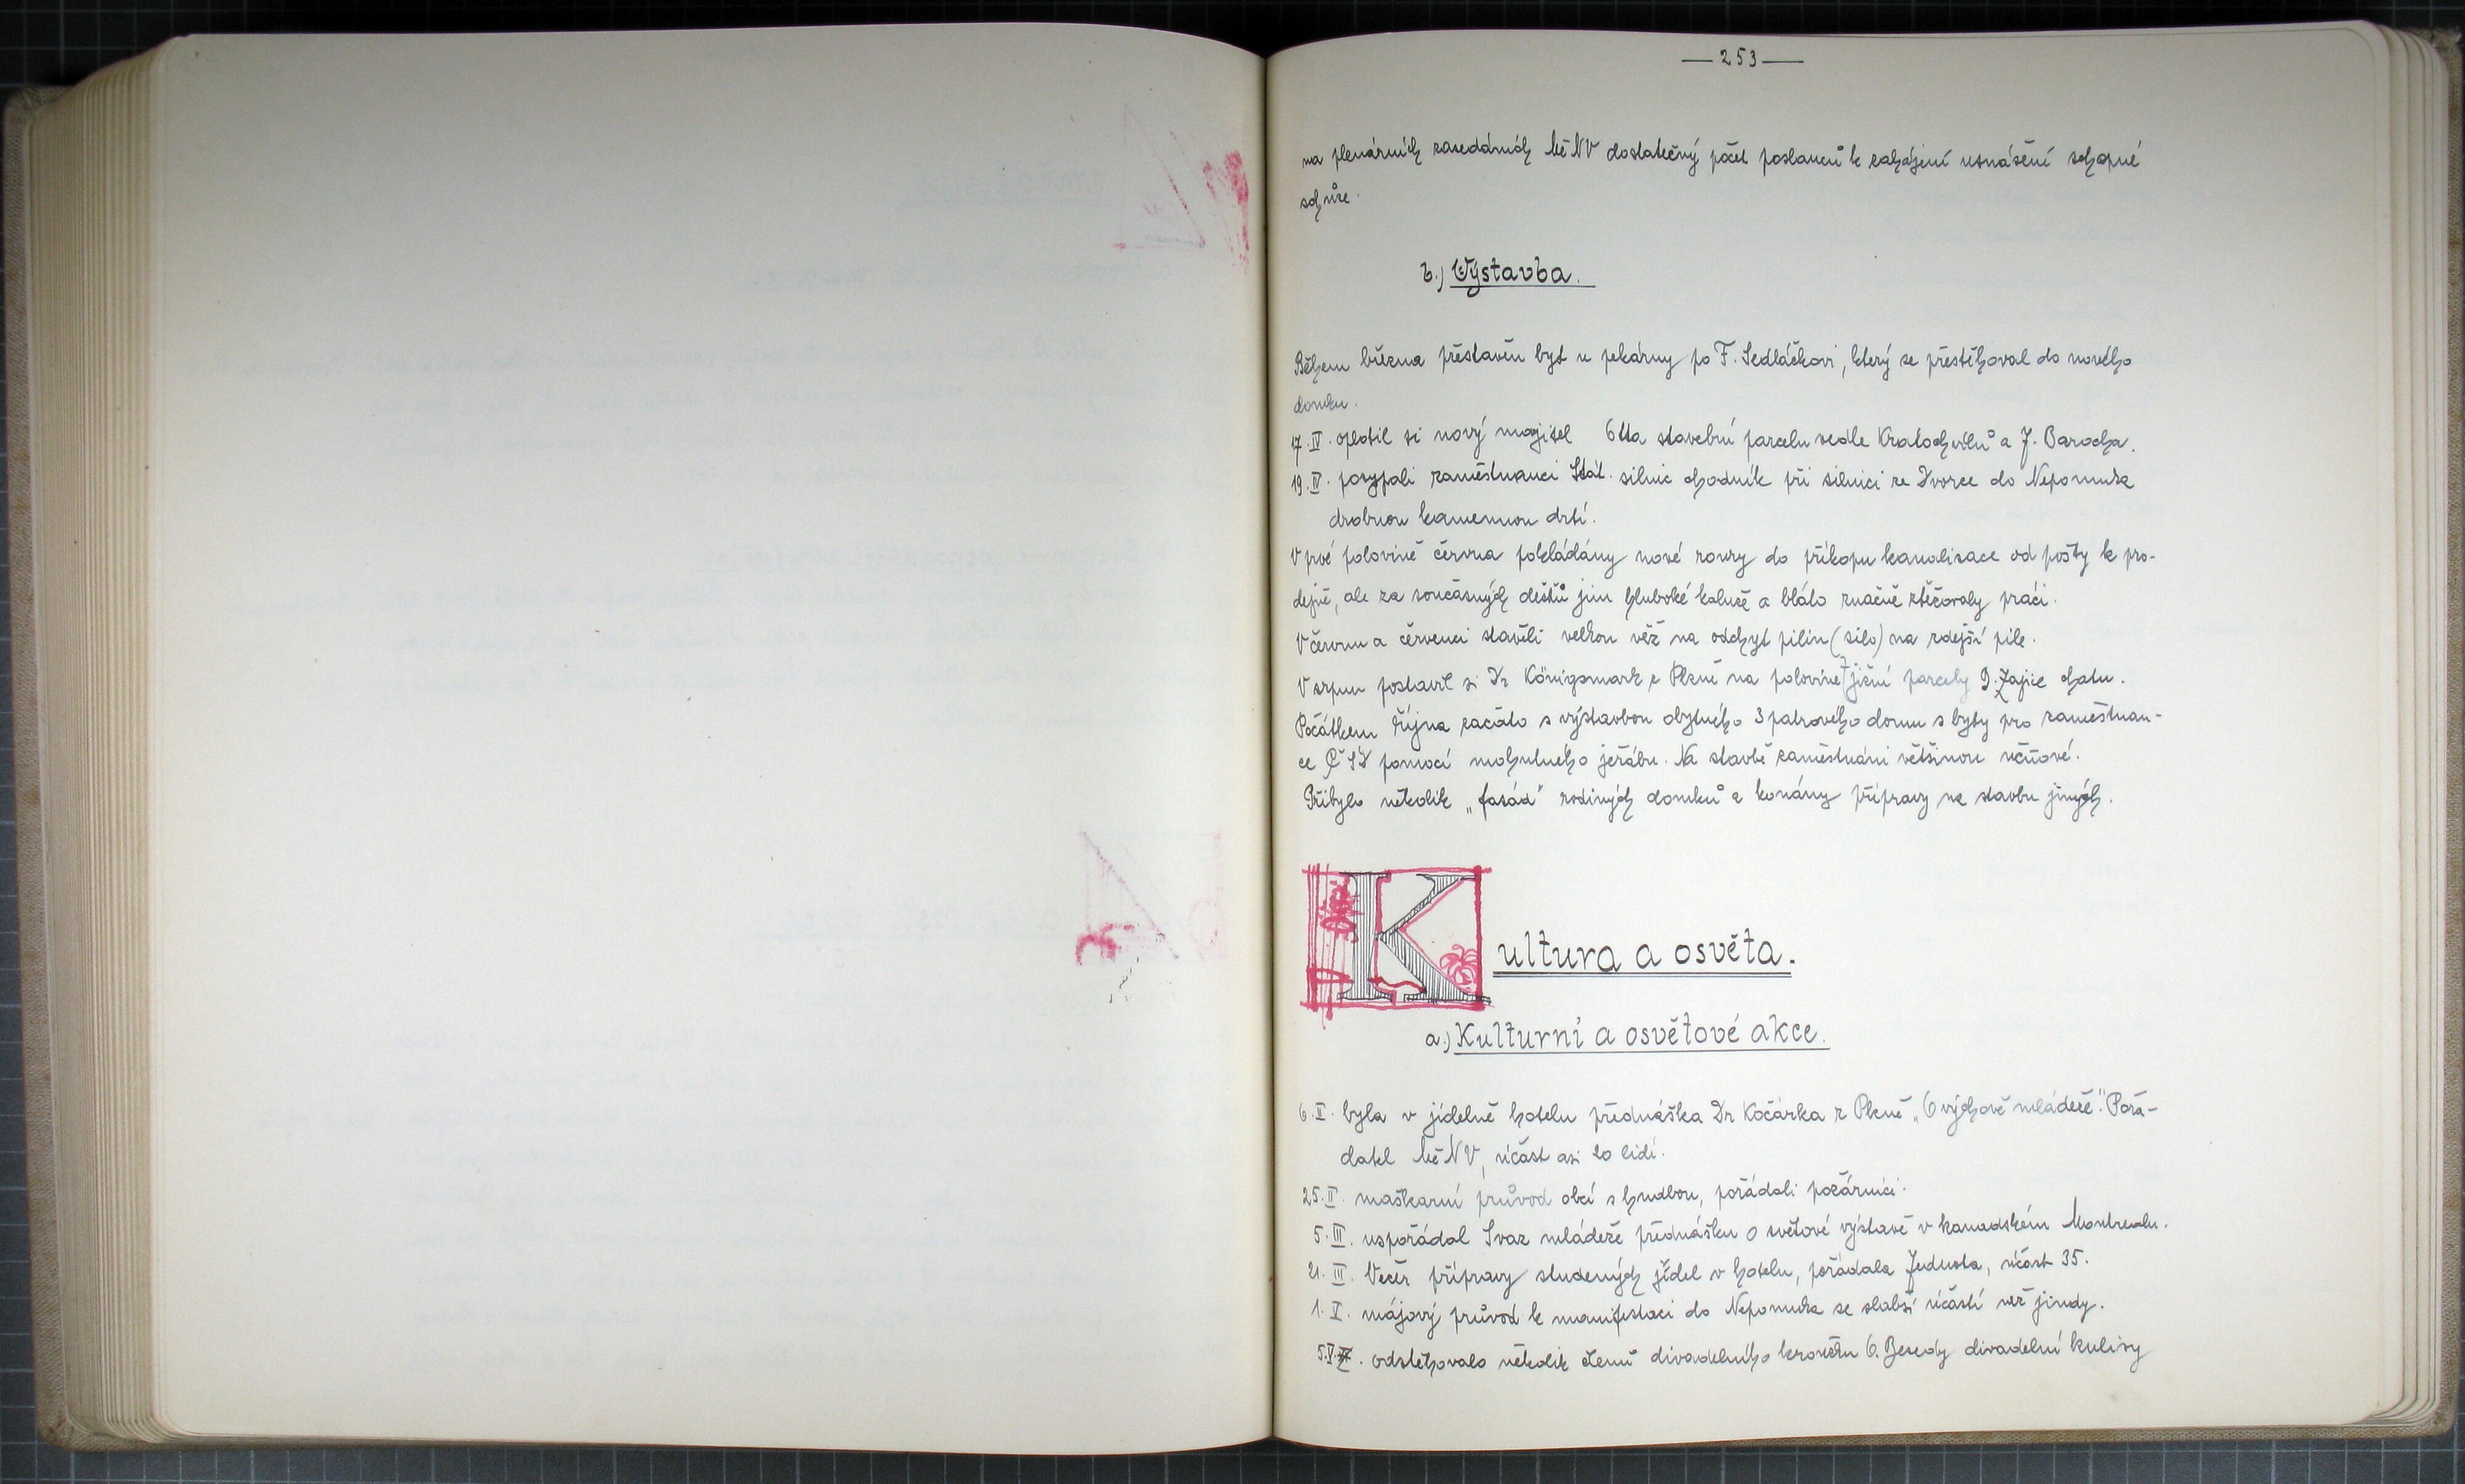 — 253 —
na plenárních zasedáních MěNV dostatečný počet poslanců k zahájení usnášení schopné
schůze.
b.) Výstavba.
Během března přestavěn byt u pekárny po F. Sedláčkovi, který se přestěhoval do nového
domku.
17.IV. oplotil si nový majitel Otta stavební parcelu vedle Kratochvílů a J. Barocha.
19.IV. posypali zaměstnanci Stát. silnic chodník při silnici ze Dvorce do Nepomuka
drobnou kamennou drtí.
V prvé polovině června pokládány nové roury do příkopu kanalisace od pošty k pro-
dejně, ale za současných dešťů jim hluboké kaluže a bláto značně ztěžovaly práci.
V červnu a červenci stavěli velkou věž na odchyt pilin (silo) na zdejší pile.
V srpnu postavil si Dr Königsmark z Plzně na polovině jižní parcely J. Zajíce chatu.
Počátkem října začato s výstavbou obytného 3 patrového domu s byty pro zaměstnan-
ce ČSD pomocí mohutného jeřábu. Na stavbě zaměstnáni většinou učňové.
Přibylo několik „fasád" rodiných domků a konány přípravy na stavbu jiných.
Kultura a osvěta.
a.) Kulturní a osvětové akce.
6.II. byla v jídelně hotelu přednáška Dr Kočárka z Plzně „O výchově mládeže". Pořa-
datel MěNV, účast asi 20 lidí.
25.II. maškarní průvod obcí s hudbou, pořádali požárníci.
5.III. uspořádal Svaz mládeže přednášku o světové výstavě v kanadském Montrealu.
21.III. Večer přípravy studených jídel v hotelu, pořádala Jednota, účast 35.
1.V. májový průvod k manifestaci do Nepomuka se slabší účastí než jindy.
5.V. odstěhovalo několik členů divadelního kroužku O. Besedy divadelní kulisy